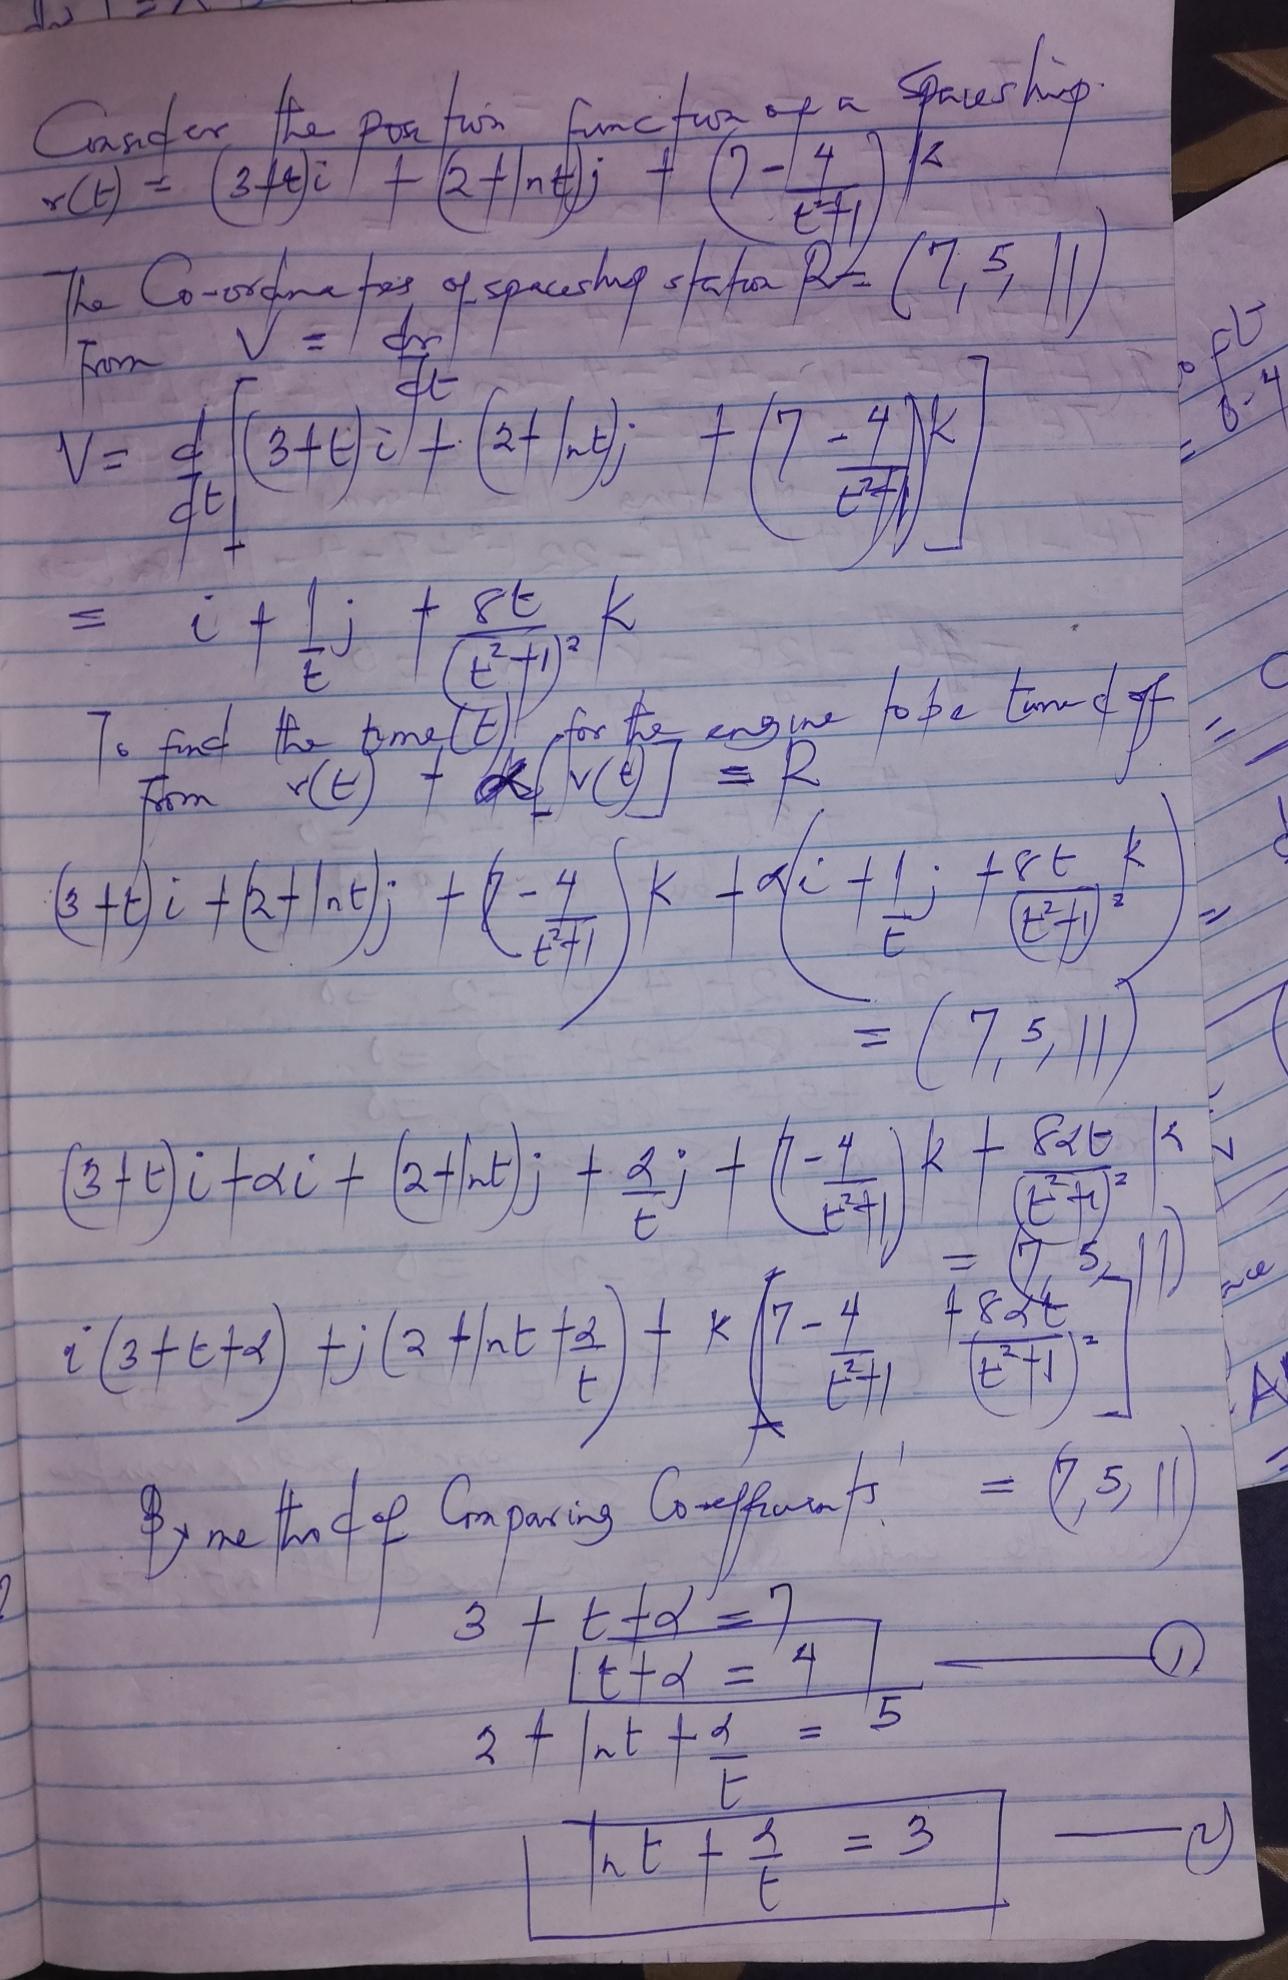 Consider the position function of a Spaceship.
r(t) = (3+t)i + (2+lnt)j + (7 - 4/(t²+1)) k
The Co-ordinates of spaceship station R = (7, 5, 11)
From V = dr/dt
V = d/dt [(3+t)i + (2+lnt)j + (7 - 4/(t²+1))k]
= i + 1/t j + 8t/(t²+1)² k
To find the time(t) for the engine to be turned off
From r(t) + α[v(t)] = R
(3+t)i + (2+lnt)j + (7 - 4/(t²+1))k + α(i + 1/t j + 8t/(t²+1)² k)
= (7, 5, 11)
(3+t)i + αi + (2+lnt)j + α/t j + (7 - 4/(t²+1))k + 8αt/(t²+1)² k
= (7, 5, 11)
i(3+t+α) + j(2+lnt+α/t) + k[7 - 4/(t²+1) + 8αt/(t²+1)²]
= (7, 5, 11)
By method of Comparing Co-efficients
3 + t + α = 7
t + α = 4 — ①
2 + lnt + α/t = 5
lnt + α/t = 3 — ②